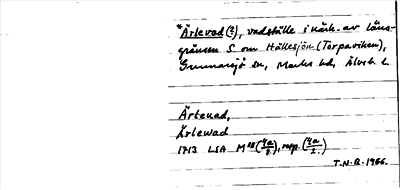 *Ärlevad (?), vadställe i närh. av läns-
gränsen S. om Hällesjön (Torpaviken),
Gunnarsjö sn, Marks hd, Älvsb. l.
Ärteuad,
Ärlewad
1713 LSA M28 resp.
T.N.B. 1966.